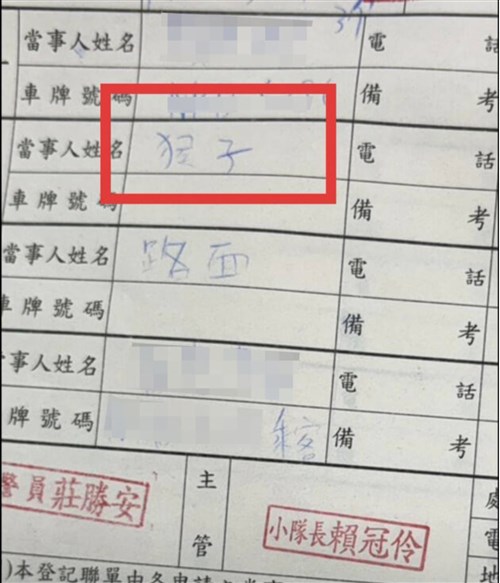 當事人姓名 電話
車牌號碼 備考
當事人姓名 猴子 電話
車牌號碼 備考
當事人姓名 路面 電話
車牌號碼 備考
當事人姓名 電話
車牌號碼 乘客 備考
警員莊勝安 主管 小隊長賴冠伶 處
電
地
)本登記聯單由各申請